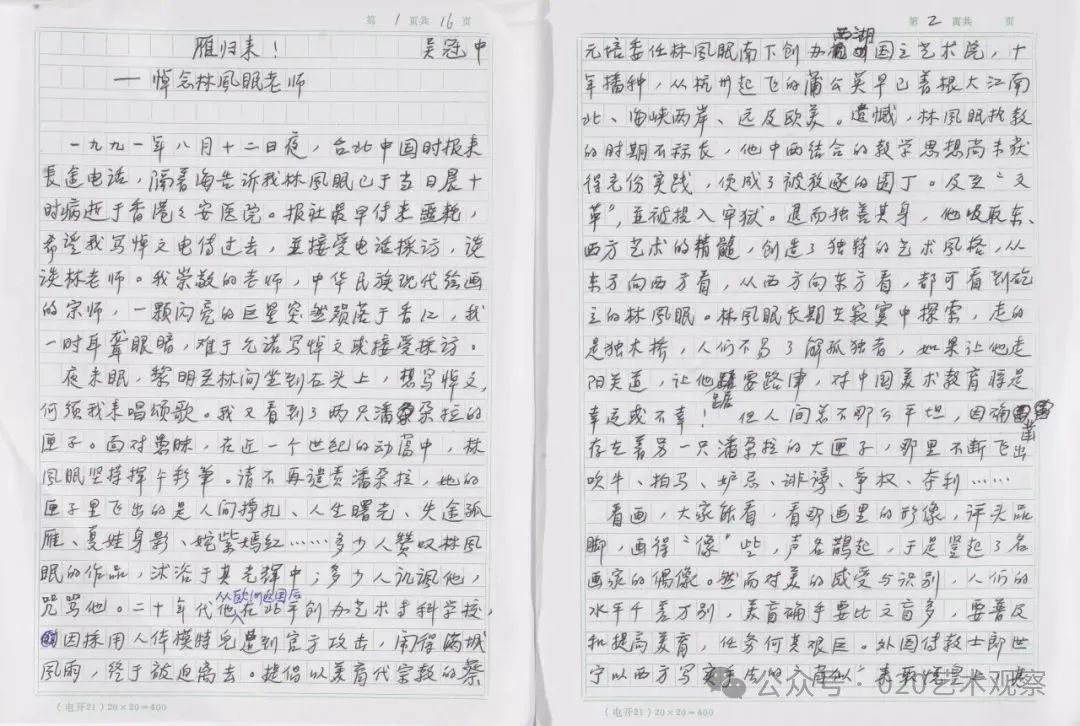 第 1 页共 16 页
雁归来！ 吴冠中
— 悼念林风眠老师
一九九一年八月十二日夜，台北中国时报来
长途电话，隔着海告诉我林风眠已于当日晨十
时病逝于香港之安医院。报社最早传来噩耗，
希望我写悼文电传过去，并接受电话采访，谈
谈林老师。我崇敬的老师，中华民族现代绘画
的宗师，一颗闪亮的巨星突然殒落于香江，我
一时耳聋眼暗，难于允诺写悼文或接受采访。
夜未眠，黎明至林间坐到石头上，想写悼文，
何须我来唱颂歌。我又看到了两只潘朵拉的
匣子。面对愚昧，在近一个世纪的动荡中，林
风眠坚持挥午彩笔。请不再谴责潘朵拉，她的
匣子里飞出的是人间挣扎、人生曙光、失途孤
雁、夏娃身影、姹紫嫣红……多少人赞叹林风
眠的作品，沐浴于其光辉中；多少人讥讽他，
咒骂他。二十年代他从欧洲返国后在北平创办艺术专科学校，
因採用人体模特儿遭到官方攻击，闹得满城
风雨，终于被迫离去。提倡以美育代宗教的蔡
（电开21）20×20=400
第 2 页共 页
元培委任林风眠南下创办西湖国立艺术院，十
年播种，从杭州起飞的蒲公英早已着根大江南
北、海峡两岸、远及欧美。遗憾，林风眠执教
的时期不称长，他中西结合的教学思想尚未获
得充份实践，便成了被放逐的园丁。及至“文
革”，并被投入牢狱。退而独善其身，他吸取东、
西方艺术的精髓，创造了独特的艺术风格，从
东方向西方看，从西方向东方看，都可看到屹
立的林风眠。林风眠长期在寂寞中探索，走的
是独木桥，人们不易了解孤独者，如果让他走
阳关道，让他居要路津，对中国美术教育将是
幸运或不幸！但人间总不那么平坦，因确凿
存在着另一只潘朵拉的大匣子，那里不断飞出
吹牛、拍马、妒忌、诽谤、争权、夺利……
看画，大家能看，看那画里的形像，评头品
脚，画得“像”些，声名鹊起，于是竖起了名
画家的偶像。然而对美的感受与识别，人们的
水平千差万别，美育确乎要比文盲多，要普及
和提高美育，任务何其艰巨。外国传教士郎世
宁以西方写实手法的
公众号·020艺术观察
（电开21）20×20=400